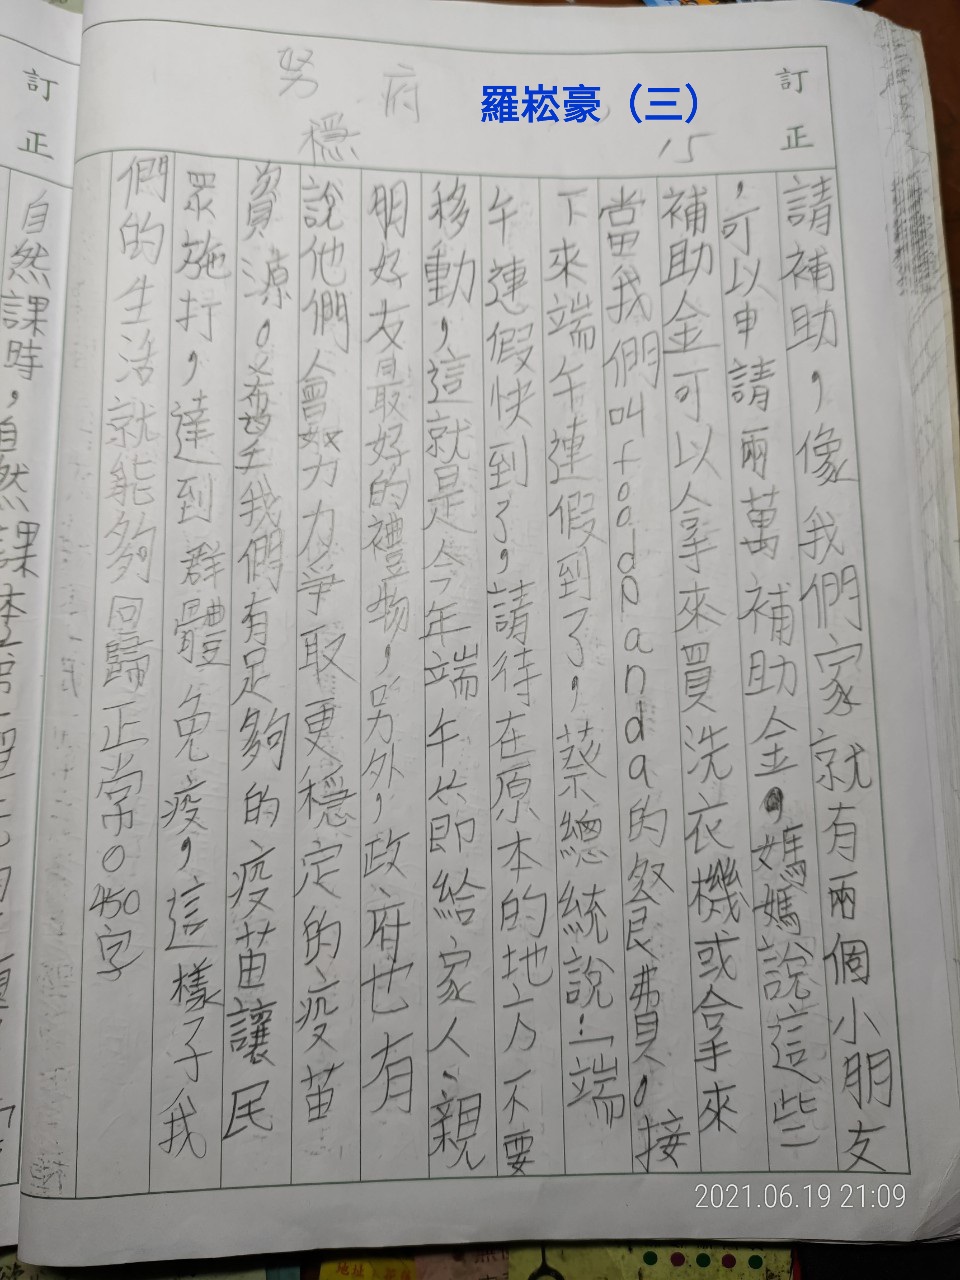 羅崧豪（三）
訂正
15
府
努
穩
請補助，像我們家就有兩個小朋友
，可以申請兩萬補助金。媽媽說這些
補助金可以拿來買洗衣機或拿來
當我們叫foodpanda的餐費。接
下來端午連假到了，蔡總統說：「端
午連假快到了，請待在原本的地方不要
移動，這就是今年端午節給家人、親
朋好友最好的禮物，另外，政府也有
說他們會努力力爭取更穩定的疫苗
資源。希望我們有足夠的疫苗讓民
眾施打，達到群體免疫，這樣子我
們的生活就能夠回歸正常。450字
訂正
自然課時，自然課本
2021.06.19 21:09